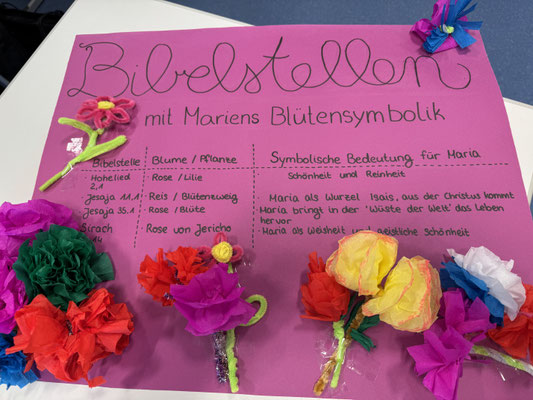 Bibelstellen
mit Mariens Blütensymbolik
Bibelstelle Blume / Pflanze Symbolische Bedeutung für Maria
Hohelied 2,1 Rose / Lilie Schönheit und Reinheit
Jesaja 11.1 Reis / Blütenzweig Maria als Wurzel Isais, aus der Christus kommt
Jesaja 35.1 Rose / Blüte Maria bringt in der 'Wüste der Welt' das Leben hervor
Sirach 14 Rose von Jericho Maria als Weisheit und geistliche Schönheit